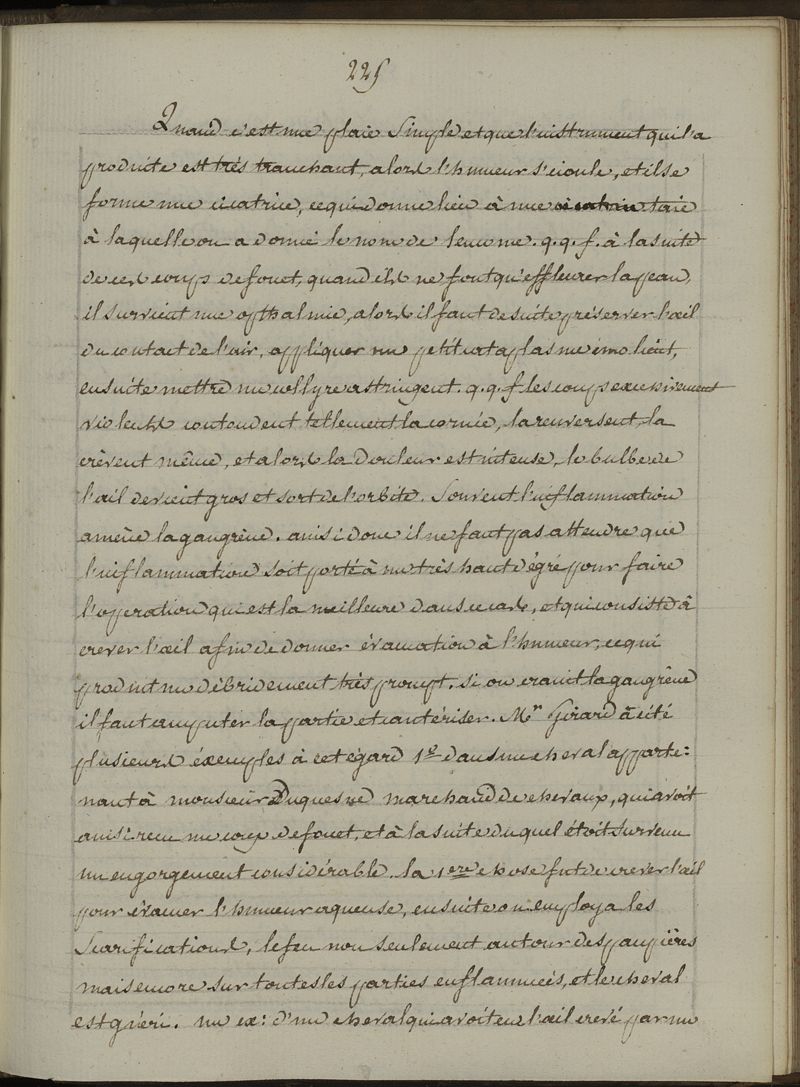 225
Quand c'est une plaie simple et que l'instrument qui l'a
produite est très tranchant, alors l'humeur s'écoule, et il se
forme une cicatrice, ce qui donne lieu à une taie
à laquelle on a donné le nom de leucome. q.q.f. à la suite
de ces coups de fouet, quand ils ne font qu'effleurer la peau,
il survient une opthalmie, alors il faut de suite préserver l'œil
du contact de l'air, appliquer un petit cataplasme émolient,
ensuite mettre un collyre astringent. q.q.f. les coups excessivement
violents contondent tellement la cornée, la renversent, la
crèvent même, et alors la douleur est intense, le bulbe de
l'œil devient gros et sort de l'orbite. Souvent l'inflammation
amène la gangrène. ainsi donc il ne faut pas attendre que
l'inflammation soit porté à un très haut dégré pour faire
l'operation qui est la meilleure dans ce cas, et qui consiste à
crever l'œil afin de donner évacuation à l'humeur, ce qui
produit un débridement très prompt. si on craint la gangrène
il faut amputer la partie et cautériser. Mr Girard à cité
plusieurs éxemples à cet égard 1º dans un cheval apparte:
nant à monsieur Duquesne marchand de chevaux, qui avoit
ainsi recu un coup de fouet, et à la suite duquel étoit survenu
un engorgement considérable. la 1ere chose fut de crever l'œil
pour évacuer l'humeur aqueuse, ensuite on employa les
scarifications, le feu non seulement autour des paupières
mais encore sur toutes les parties enflammées, et le cheval
est guéri. un ex: d'un cheval qui avoit eu l'œil crevé par un